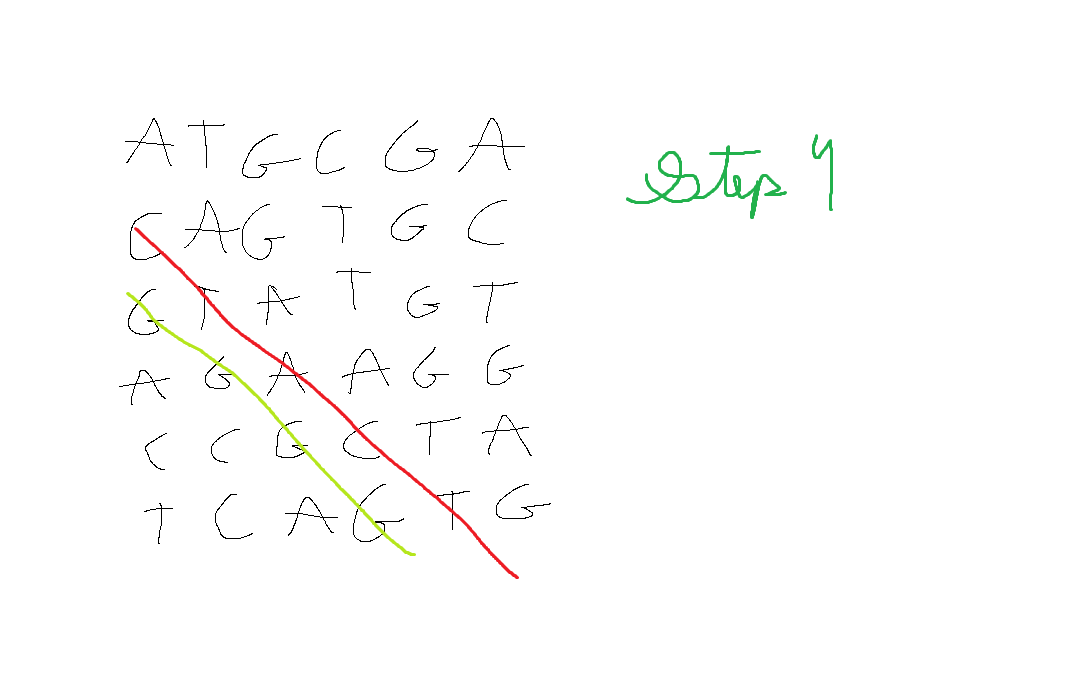 A T G C G A
G A G T G C
G T A T G T
A G A A G G
C C G C T A
T C A G T G
Step 4